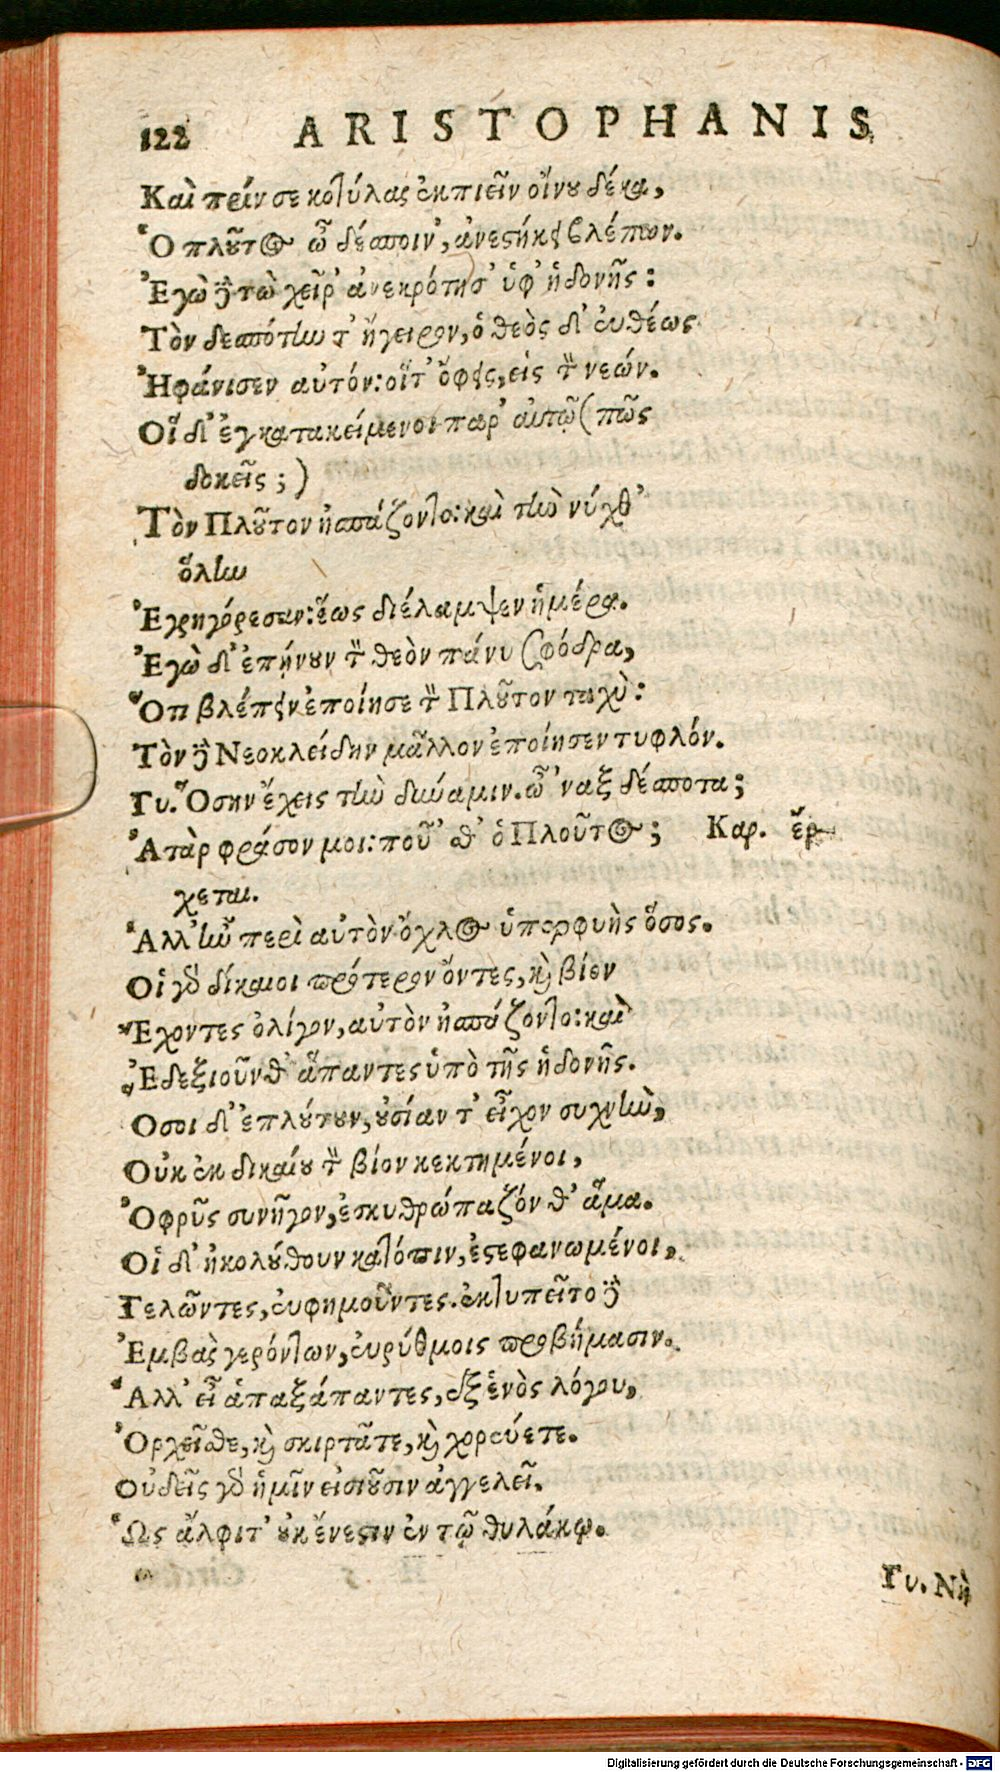 122 ARISTOPHANIS
Καὶ πρίν σε κοτύλας ἐκπιεῖν οἴνου δέκα,
Ὁ πλοῦτος ὦ δέσποιν', ἀνεστήκει βλέπων.
Ἐγὼ δὲ τὼ χεῖρ' ἀνεκρότησ' ὑφ' ἡδονῆς:
Τὸν δεσπότην τ' ἤγειρον, ὁ θεὸς δ' εὐθέως
Ἠφάνισεν αὑτόν: οἵτ' ὄφεις, εἰς τὸν νεών.
Οἱ δ' ἐγκατακείμενοι παρ' αὐτῷ (πῶς
δοκεῖς;)
Τὸν Πλοῦτον ἠσπάζοντο: καὶ τὴν νύχθ'
ὅλην
Ἐγρηγόρεσαν: ἕως διέλαμψεν ἡμέρα.
Ἐγὼ δ' ἐπῄνουν τὸν θεὸν πάνυ σφόδρα,
Ὅτι βλέπειν ἐποίησε τὸν Πλοῦτον ταχὺ:
Τὸν δὲ Νεοκλείδην μᾶλλον ἐποίησεν τυφλόν.
Γυ. Ὅσην ἔχεις τὴν δύναμιν. ὦ 'ναξ δέσποτα;
Ἀτὰρ φράσον μοι: ποῦ 'σθ' ὁ Πλοῦτος; Καρ. ἔρ-
χεται.
Ἀλλ' ἦν περὶ αὐτὸν ὄχλος ὑπερφυὴς ὅσος.
Οἱ γὰρ δίκαιοι πρότερον ὄντες, καὶ βίον
Ἔχοντες ὀλίγον, αὐτὸν ἠσπάζοντο: καὶ
Ἐδεξιοῦνθ' ἅπαντες ὑπὸ τῆς ἡδονῆς.
Ὅσοι δ' ἐπλούτουν, οὐσίαν τ' εἶχον συχνὴν,
Οὐκ ἐκ δικαίου τὸν βίον κεκτημένοι,
Ὀφρῦς συνῆγον, ἐσκυθρώπαζόν θ' ἅμα.
Οἱ δ' ἠκολούθουν κατόπιν, ἐστεφανωμένοι,
Γελῶντες, εὐφημοῦντες. ἐκτυπεῖτο δὲ
Ἐμβὰς γερόντων, εὐρύθμοις προβήμασιν.
Ἀλλ' εἶ ἁπαξάπαντες, ἐξ ἑνὸς λόγου,
Ὀρχεῖσθε, καὶ σκιρτᾶτε, καὶ χορεύετε.
Οὐδεῖς γὰρ ἡμῖν εἰσιοῦσιν ἀγγελεῖ.
Ὡς ἄλφιτ' οὐκ ἔνεστιν ἐν τῷ θυλάκῳ.
Γυ. Νὴ
Digitalisierung gefördert durch die Deutsche Forschungsgemeinschaft - DFG